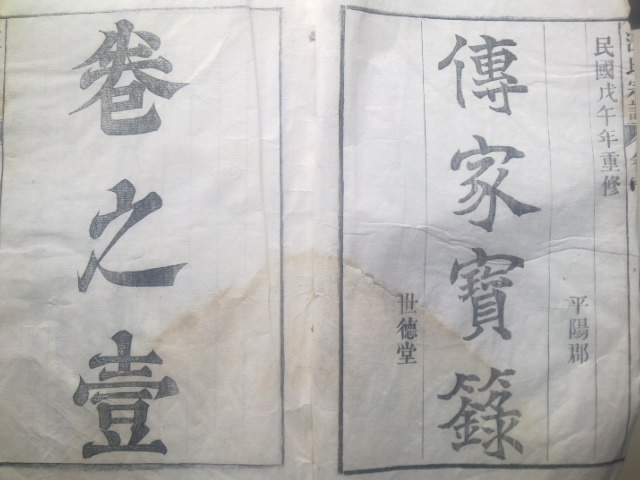 民國戊午年重修
平陽郡
傳家寶籙
世德堂
卷之壹